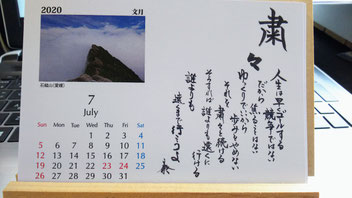 2020
文月
石鎚山(愛媛)
7
July
Sun Mon Tue Wed Thu Fri Sat
1 2 3 4
5 6 7 8 9 10 11
12 13 14 15 16 17 18
19 20 21 22 23 24 25
26 27 28 29 30 31
粛々
人生は早くゴールする
競争ではない
だから
焦ることはない
ゆっくりでいいから
歩みをやめない
それを
粛々と続ける
そうすれば
誰よりも遠くに
行ける
誰よりも
遠くまで行こうよ